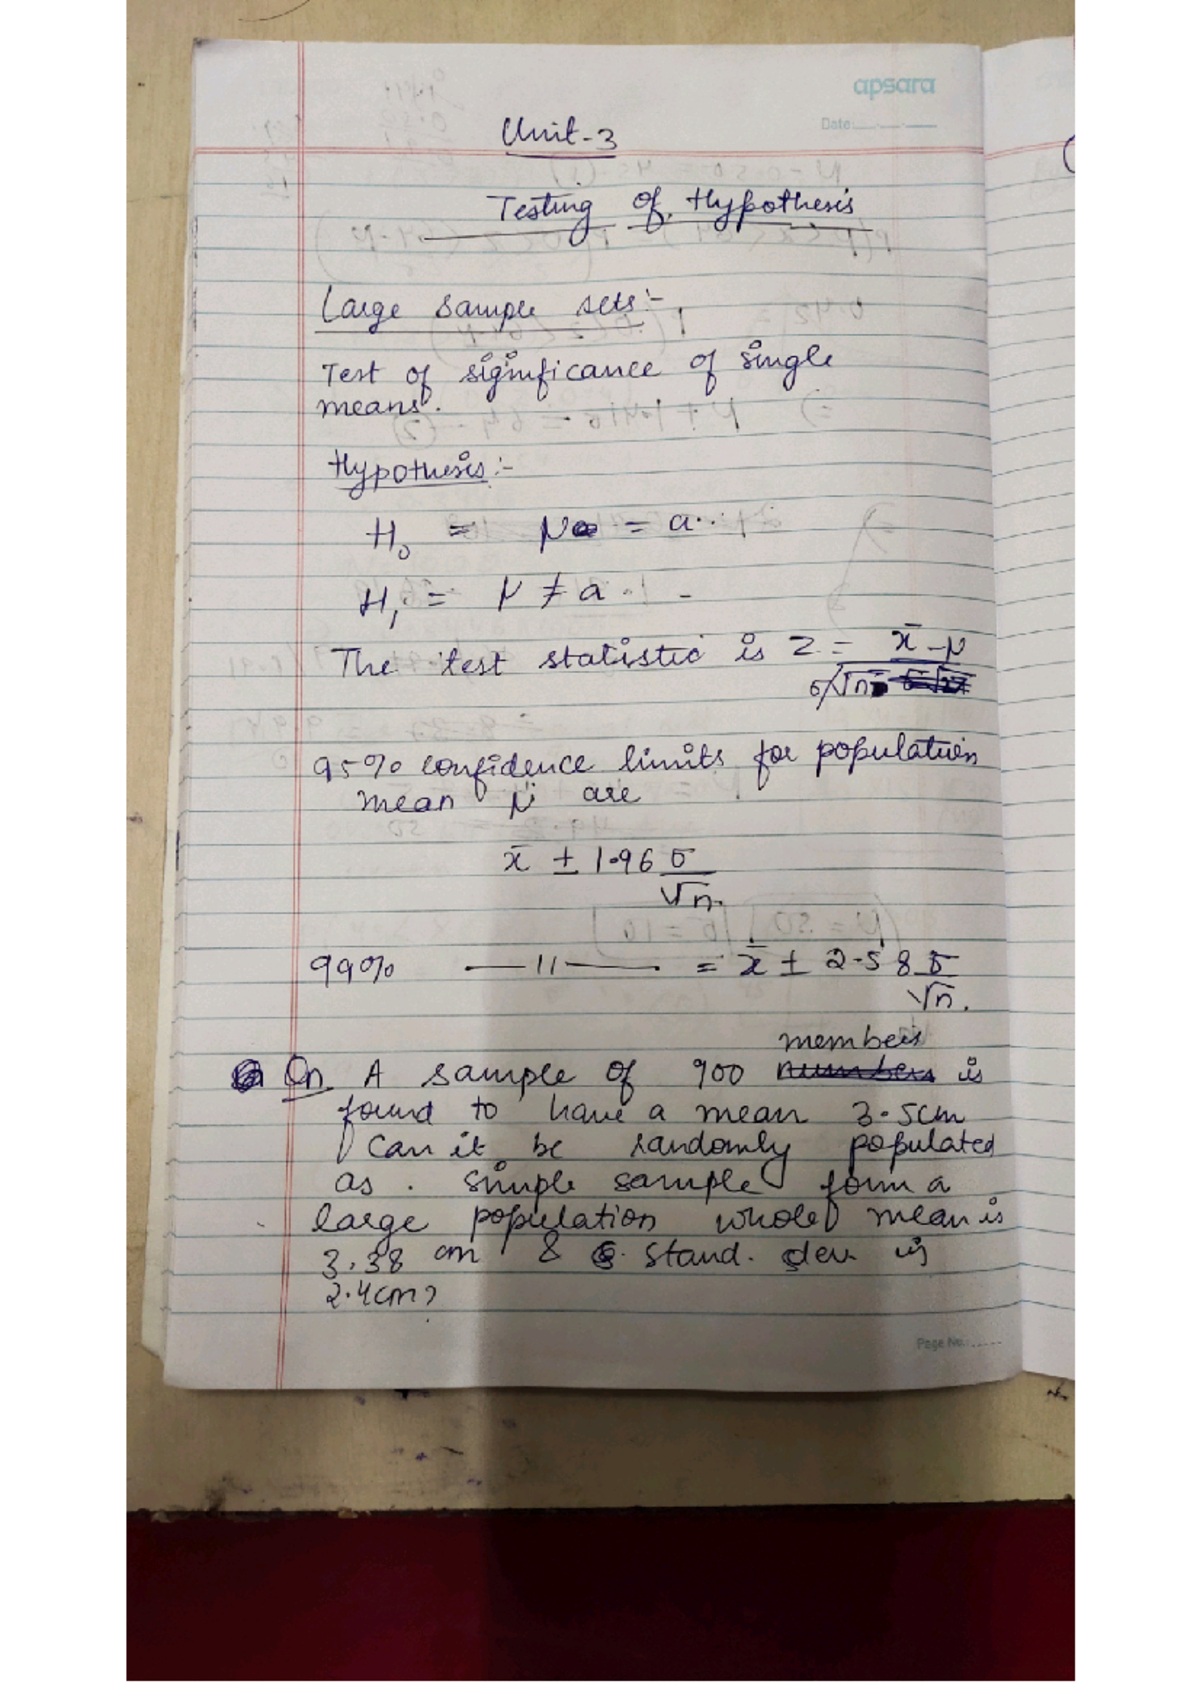 apsara
Date
Unit-3
Testing of Hypothesis
Large sample sets:-
Test of significance of single
means.
Hypothesis:-
H₀ = μ = a.
H₁ = μ ≠ a.
The test statistic is Z = x̄ - μ
σ/√n
95% confidence limits for population
mean μ are
x̄ ± 1.96 σ
√n.
99% —11— = x̄ ± 2.58 σ
√n.
members
Qn. A sample of 900 numbers is
found to have a mean 3.5cm
Can it be randomly populated
as. simple sample form a
large population whole mean is
3.38 cm & stand. dev is
2.4cm?
Page No.